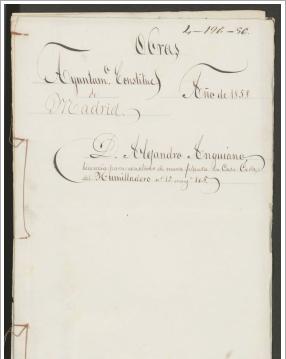 4-196-56.
Obras
Ayuntamo. Constitucl
Año de 1858
de
Madrid.
D. Alejandro Anguiano
licencia para construir de nueva planta la Casa Calle
del Humilladero no. 15